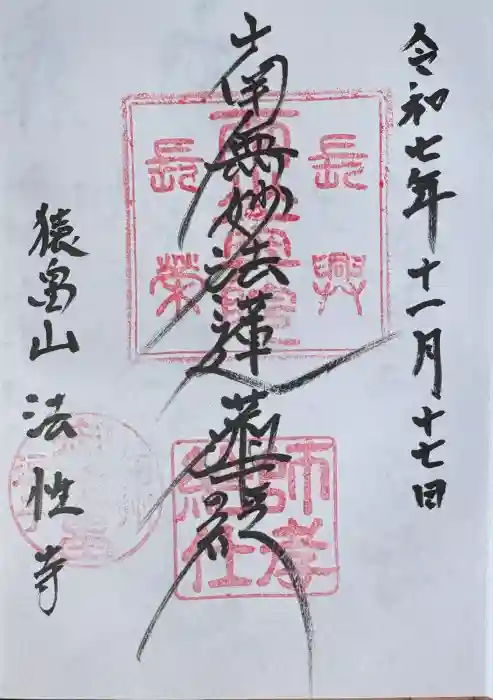 令和七年十一月十七日
南無妙法蓮華経
猿畠山 法性寺
長興
長榮